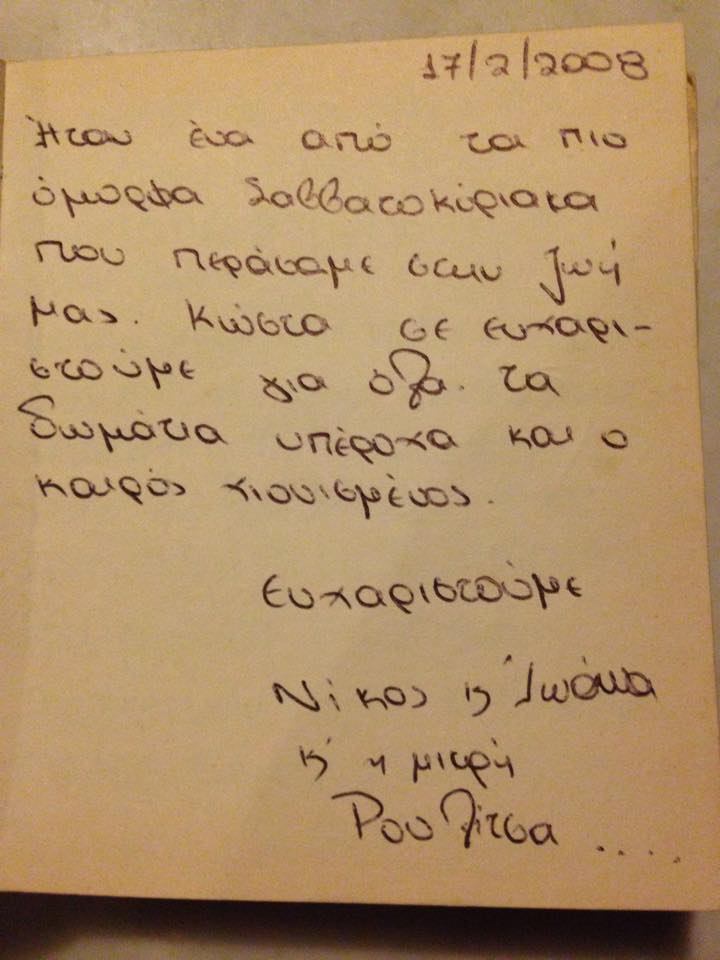 17/2/2008
Ήταν ένα από τα πιο
όμορφα Σαββατοκύριακα
που περάσαμε στην ζωή
μας. Κώστα σε ευχαρι-
στούμε για όλα. Τα
δωμάτια υπέροχα και ο
καιρός χιονισμένος.
Ευχαριστούμε
Νίκος κ Ιωάννα
κ' η μικρή
Ρουλίτσα .....